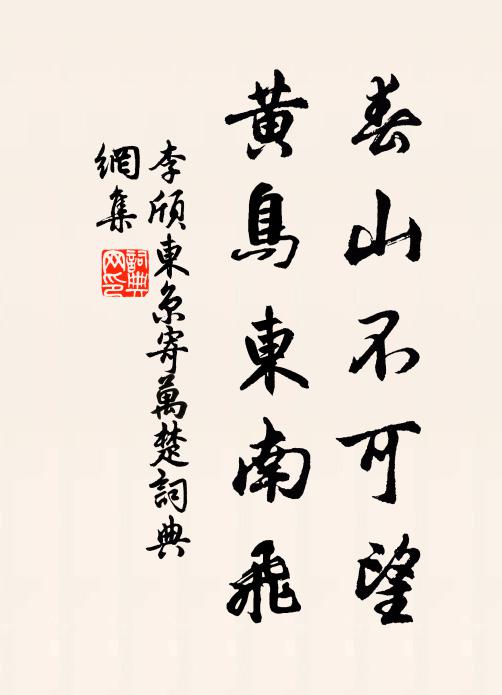 春山不可望
黃鳥東南飛
李頎東京寄萬楚詞典
網集
詞典
网印